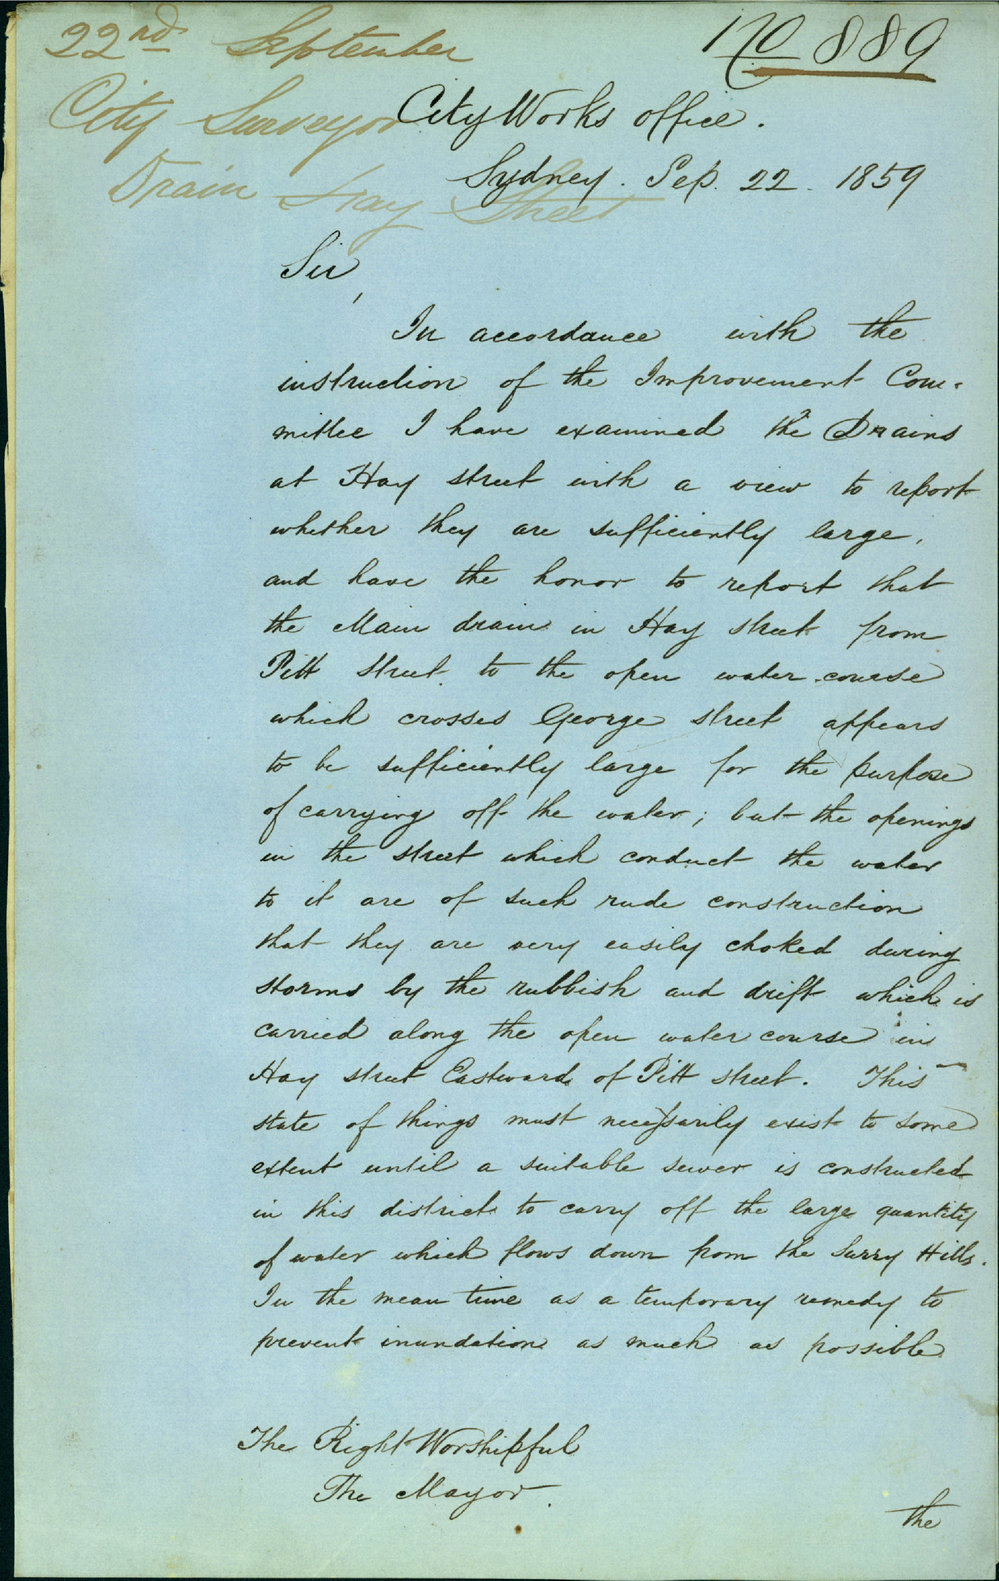 22nd September
No 889
City Surveyor
City Works Office.
Drain Hay Street
Sydney. Sep. 22. 1859
Sir,
In accordance with the
instruction of the Improvement Com-
mittee I have examined the Drains
at Hay street with a view to report
whether they are sufficiently large,
and have the honor to report that
the Main drain in Hay street from
Pitt street to the open water course
which crosses George street appears
to be sufficiently large for the purpose
of carrying off the water; but the openings
in the street which conduct the water
to it are of such rude construction
that they are very easily choked during
storms by the rubbish and drift which is
carried along the open water course in
Hay street Eastward of Pitt street. This
state of things must necessarily exist to some
extent until a suitable sewer is constructed
in this district to carry off the large quantity
of water which flows down from the Surry Hills.
In the mean time as a temporary remedy to
prevent inundation as much as possible
The Right Worshipful
The Mayor.
the